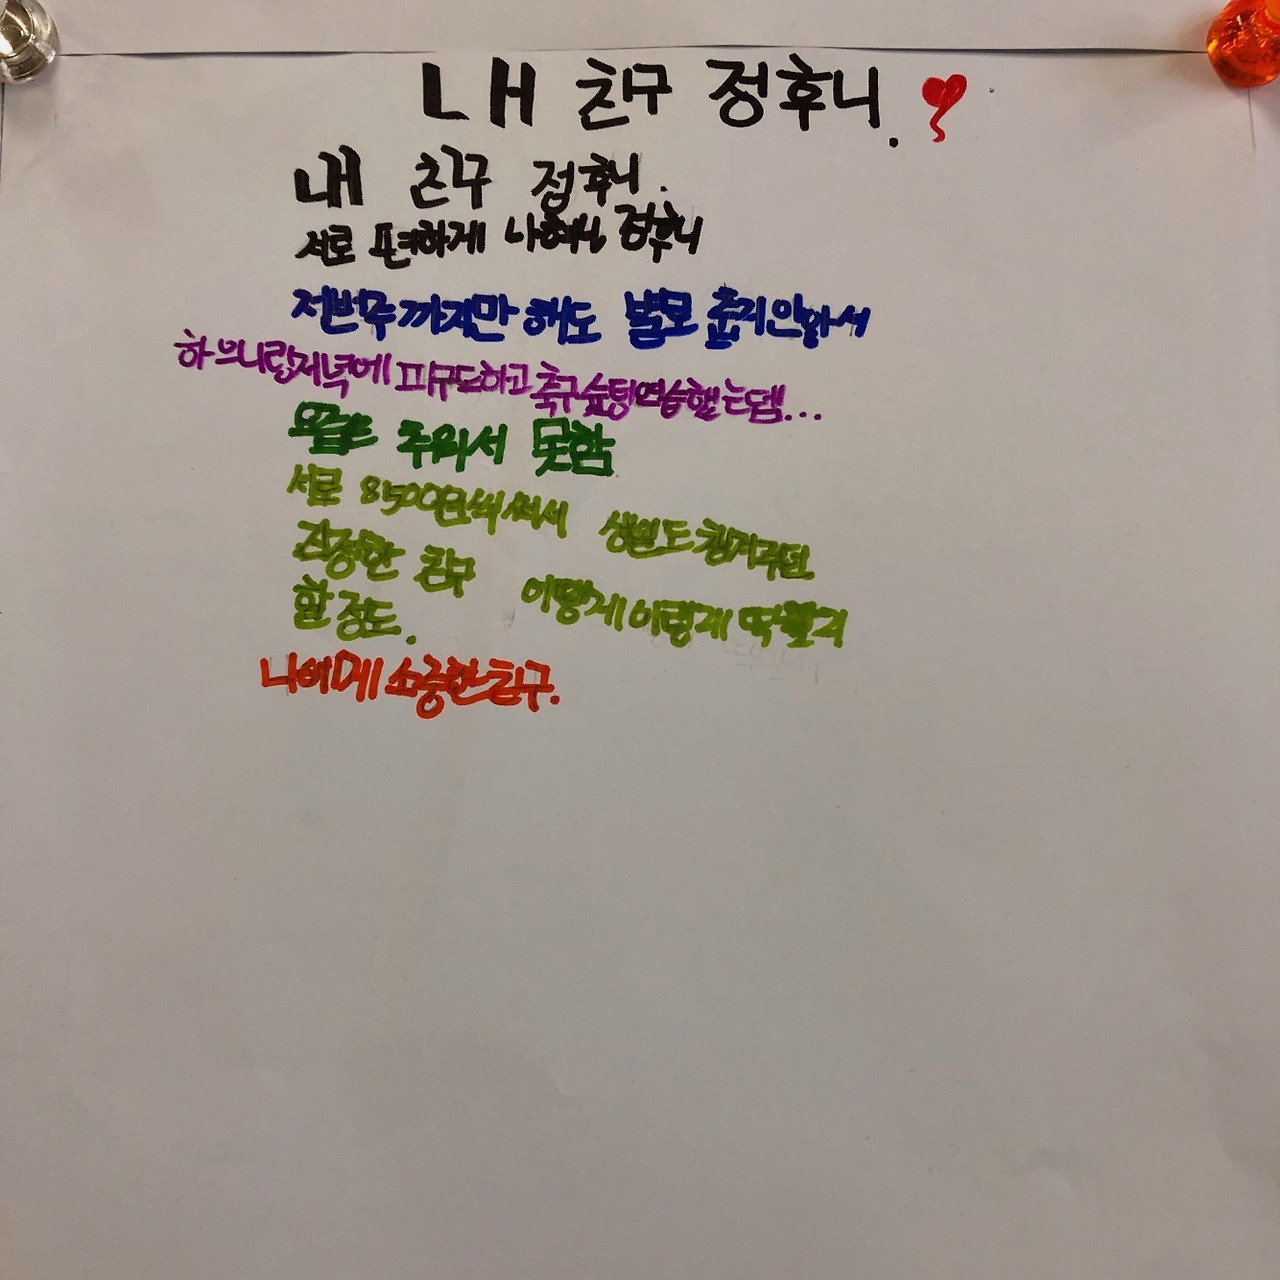 내 친구 정후니.
내 친구 정후니.
서로 편하게 정후니
저번주까지만 해도 별로 춥지안아서
저녁에 피구도하고 축구슛팅연습했는뎀...
요즘은 추워서 못함
서로 8500원씩써서 생일도챙겨주던
진정한 친구 어떻게이렇게 딱할지
할정도.
나에게 소중한친구.